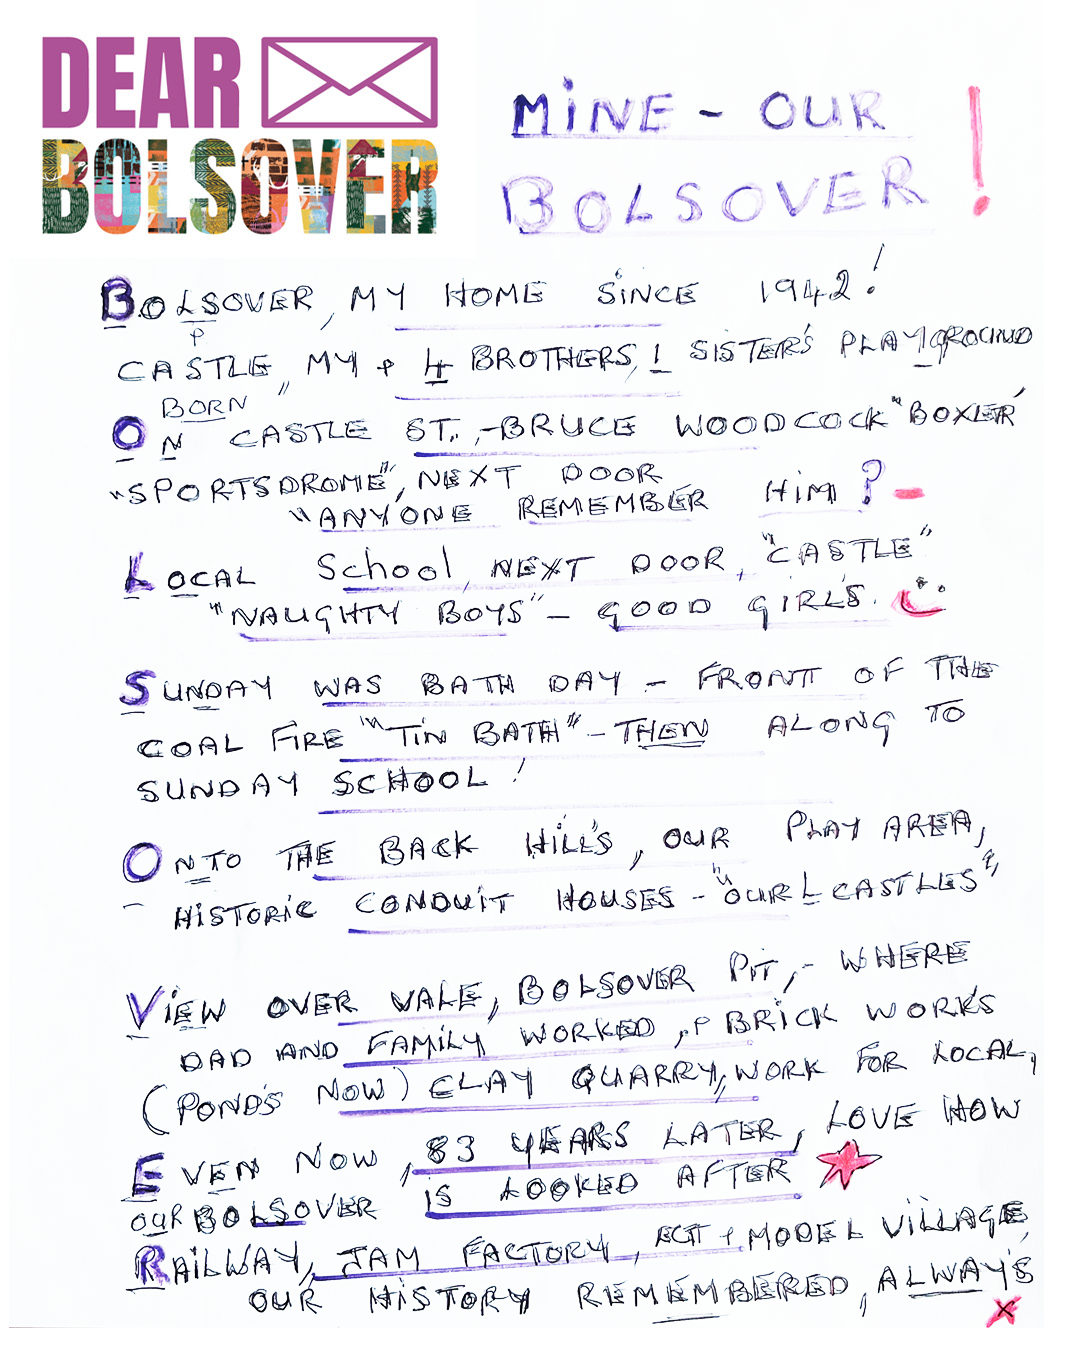 DEAR
BOLSOVER
MINE - OUR
BOLSOVER !
BOLSOVER, MY HOME SINCE 1942!
CASTLE, MY + 4 BROTHERS, 1 SISTER'S PLAYGROUND
BORN "
ON CASTLE ST., -BRUCE WOODCOCK "BOXER"
"SPORTSDROME", NEXT DOOR
"ANYONE REMEMBER HIM? -
LOCAL School, NEXT DOOR, "CASTLE"
"NAUGHTY BOYS" - GOOD GIRL'S.
SUNDAY WAS BATH DAY - FRONT OF THE
COAL FIRE "TIN BATH" - THEN ALONG TO
SUNDAY SCHOOL!
ONTO THE BACK HILL'S, OUR PLAY AREA,
- HISTORIC CONDUIT HOUSES - "OUR L CASTLES",
VIEW OVER VALE, BOLSOVER PIT, - WHERE
DAD AND FAMILY WORKED, + BRICK WORK'S
(POND'S NOW) CLAY QUARRY, WORK FOR LOCAL,
EVEN NOW, 83 YEARS LATER, LOVE HOW
OUR BOLSOVER IS LOOKED AFTER
RAILWAY, JAM FACTORY, ECT + MODEL VILLAGE,
OUR HISTORY REMEMBERED, ALWAY'S
X